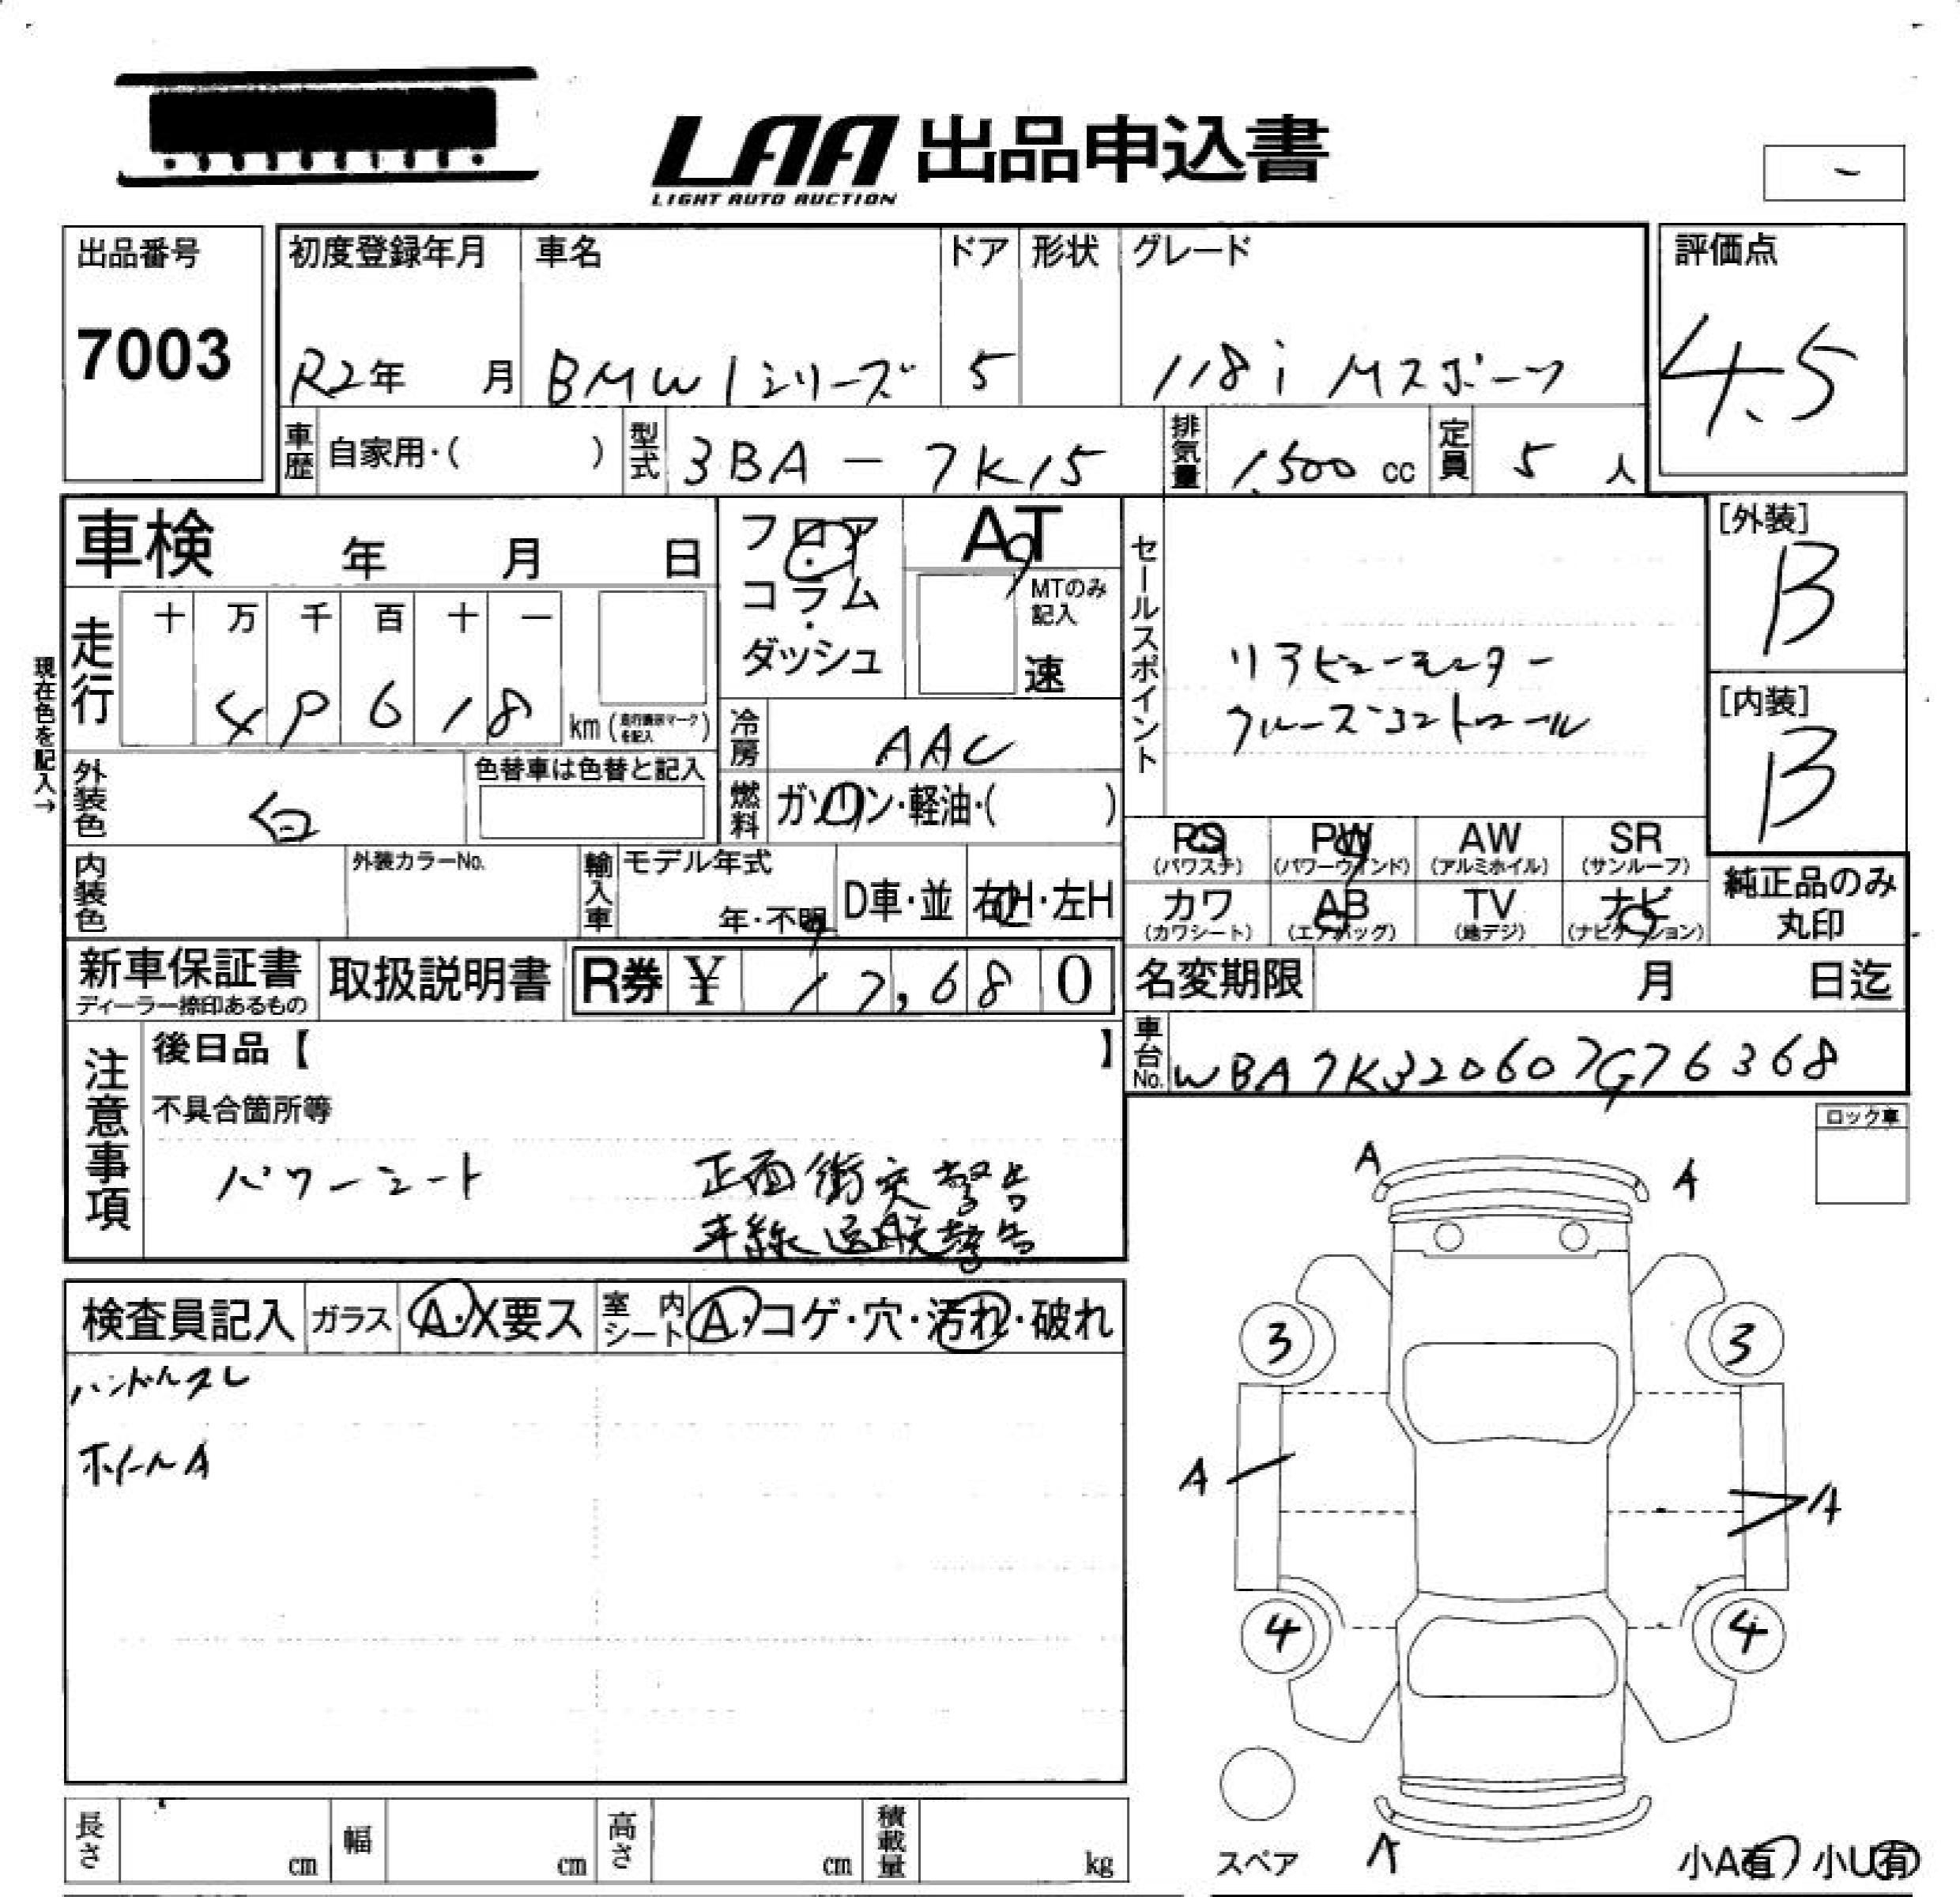 LAA 出品申込書
LIGHT AUTO AUCTION
出品番号
7003
初度登録年月 車名 ドア 形状 グレード
R2年 月 BMW 1シリーズ 5 118i Mスポーツ
評価点
4.5
車歴 自家用・( ) 型式 3BA-7K15 排気量 1,500 cc 定員 5 人
車検 年 月 日
フロア・コラム・ダッシュ
AT
MTのみ記入
速
現在色を記入→
走行 十 万 千 百 十 一
49618 km (走行表示マークを記入)
セールスポイント
リアビューモニター
クルーズコントロール
[外装]
B
[内装]
B
冷房 AAC
燃料 ガソリン・軽油・( )
外装色 白 色替車は色替と記入
内装色 外装カラーNo. 輸入車 モデル年式 年・不明 D車・並 右H・左H
PS (パワステ) PW (パワーウィンド) AW (アルミホイル) SR (サンルーフ)
カワ (カワシート) AB (エアバッグ) TV (地デジ) ナビ (ナビゲーション)
純正品のみ丸印
新車保証書 ディーラー捺印あるもの 取扱説明書 R券 ¥ 17,680
名変期限 月 日迄
車台No. WBA7K320607G76368
注意事項
後日品【 】
不具合箇所等
パワーシート 正面衝突警告
車線逸脱警告
ロック車
検査員記入 ガラス A・X要ス 室内シート A・コゲ・穴・汚れ・破れ
ハンドルスレ
ホイールA
A A
3 3
A A
4 4
スペア A
小A有 小U有
長さ cm 幅 cm 高さ cm 積載量 kg